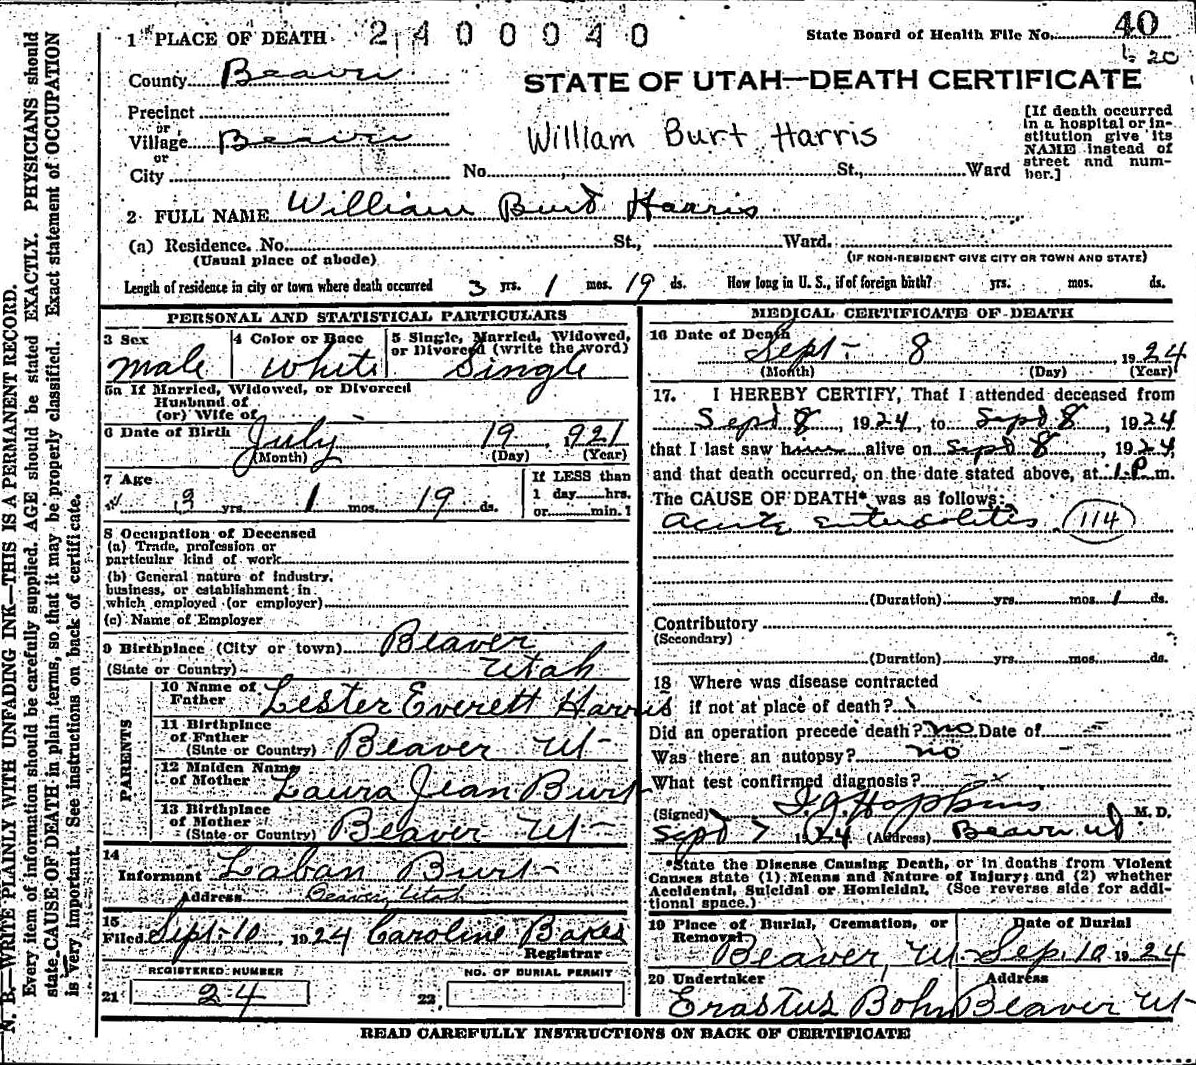 1 PLACE OF DEATH 2400040 State Board of Health File No. 40
20
County Beaver STATE OF UTAH—DEATH CERTIFICATE
Precinct
or
Village Beaver William Burt Harris
or
City No. St., Ward
[If death occurred in a hospital or institution give its NAME instead of street and number.]
2 FULL NAME William Burt Harris
(a) Residence. No. St., Ward.
(Usual place of abode) (IF NON-RESIDENT GIVE CITY OR TOWN AND STATE)
Length of residence in city or town where death occurred 3 yrs. 1 mos. 19 ds. How long in U. S., if of foreign birth? yrs. mos. ds.
PERSONAL AND STATISTICAL PARTICULARS
3 Sex 4 Color or Race 5 Single, Married, Widowed,
or Divorced (write the word)
male white Single
5a If Married, Widowed, or Divorced
Husband of
(or) Wife of
6 Date of Birth July 19, 1921
(Month) (Day) (Year)
7 Age If LESS than
1 day hrs.
3 yrs. 1 mos. 19 ds. or min.
8 Occupation of Deceased
(a) Trade, profession or
particular kind of work
(b) General nature of industry,
business, or establishment in
which employed (or employer)
(c) Name of Employer
9 Birthplace (City or town) Beaver
(State or Country) Utah
PARENTS
10 Name of
Father Lester Everett Harris
11 Birthplace
of Father
(State or Country) Beaver Ut
12 Maiden Name
of Mother Laura Jean Burt
13 Birthplace
of Mother
(State or Country) Beaver Ut
14
Informant Laban Burt
Address Beaver, Utah
15
Filed Sept 10, 1924 Caroline
Registrar
REGISTERED NUMBER NO. OF BURIAL PERMIT
21 24 22
MEDICAL CERTIFICATE OF DEATH
16 Date of Death
Sept 8, 1924
(Month) (Day) (Year)
17. I HEREBY CERTIFY, That I attended deceased from
Sept 8, 1924, to Sept 8, 1924
that I last saw him alive on Sept 8, 1924,
and that death occurred, on the date stated above, at 1 P m.
The CAUSE OF DEATH* was as follows:
acute enterocolitis (114)
(Duration) yrs. mos. 1 ds.
Contributory
(Secondary)
(Duration) yrs. mos. ds.
18 Where was disease contracted
if not at place of death?
Did an operation precede death? no Date of
Was there an autopsy? no
What test confirmed diagnosis?
(Signed) Hopkins M. D.
Sept 7 1924 (Address) Beaver Ut
*State the Disease Causing Death, or in deaths from Violent
Causes state (1) Means and Nature of Injury; and (2) whether
Accidental, Suicidal or Homicidal. (See reverse side for addi-
tional space.)
19 Place of Burial, Cremation, or Date of Burial
Removal
Beaver, Ut Sep. 10 1924
20 Undertaker Address
Erastus Bohn Beaver Ut
READ CAREFULLY INSTRUCTIONS ON BACK OF CERTIFICATE
N. B.—WRITE PLAINLY WITH UNFADING INK—THIS IS A PERMANENT RECORD.
Every item of information should be carefully supplied. AGE should be stated EXACTLY. PHYSICIANS should
state CAUSE OF DEATH in plain terms, so that it may be properly classified. Exact statement of OCCUPATION
is very important. See instructions on back of certificate.